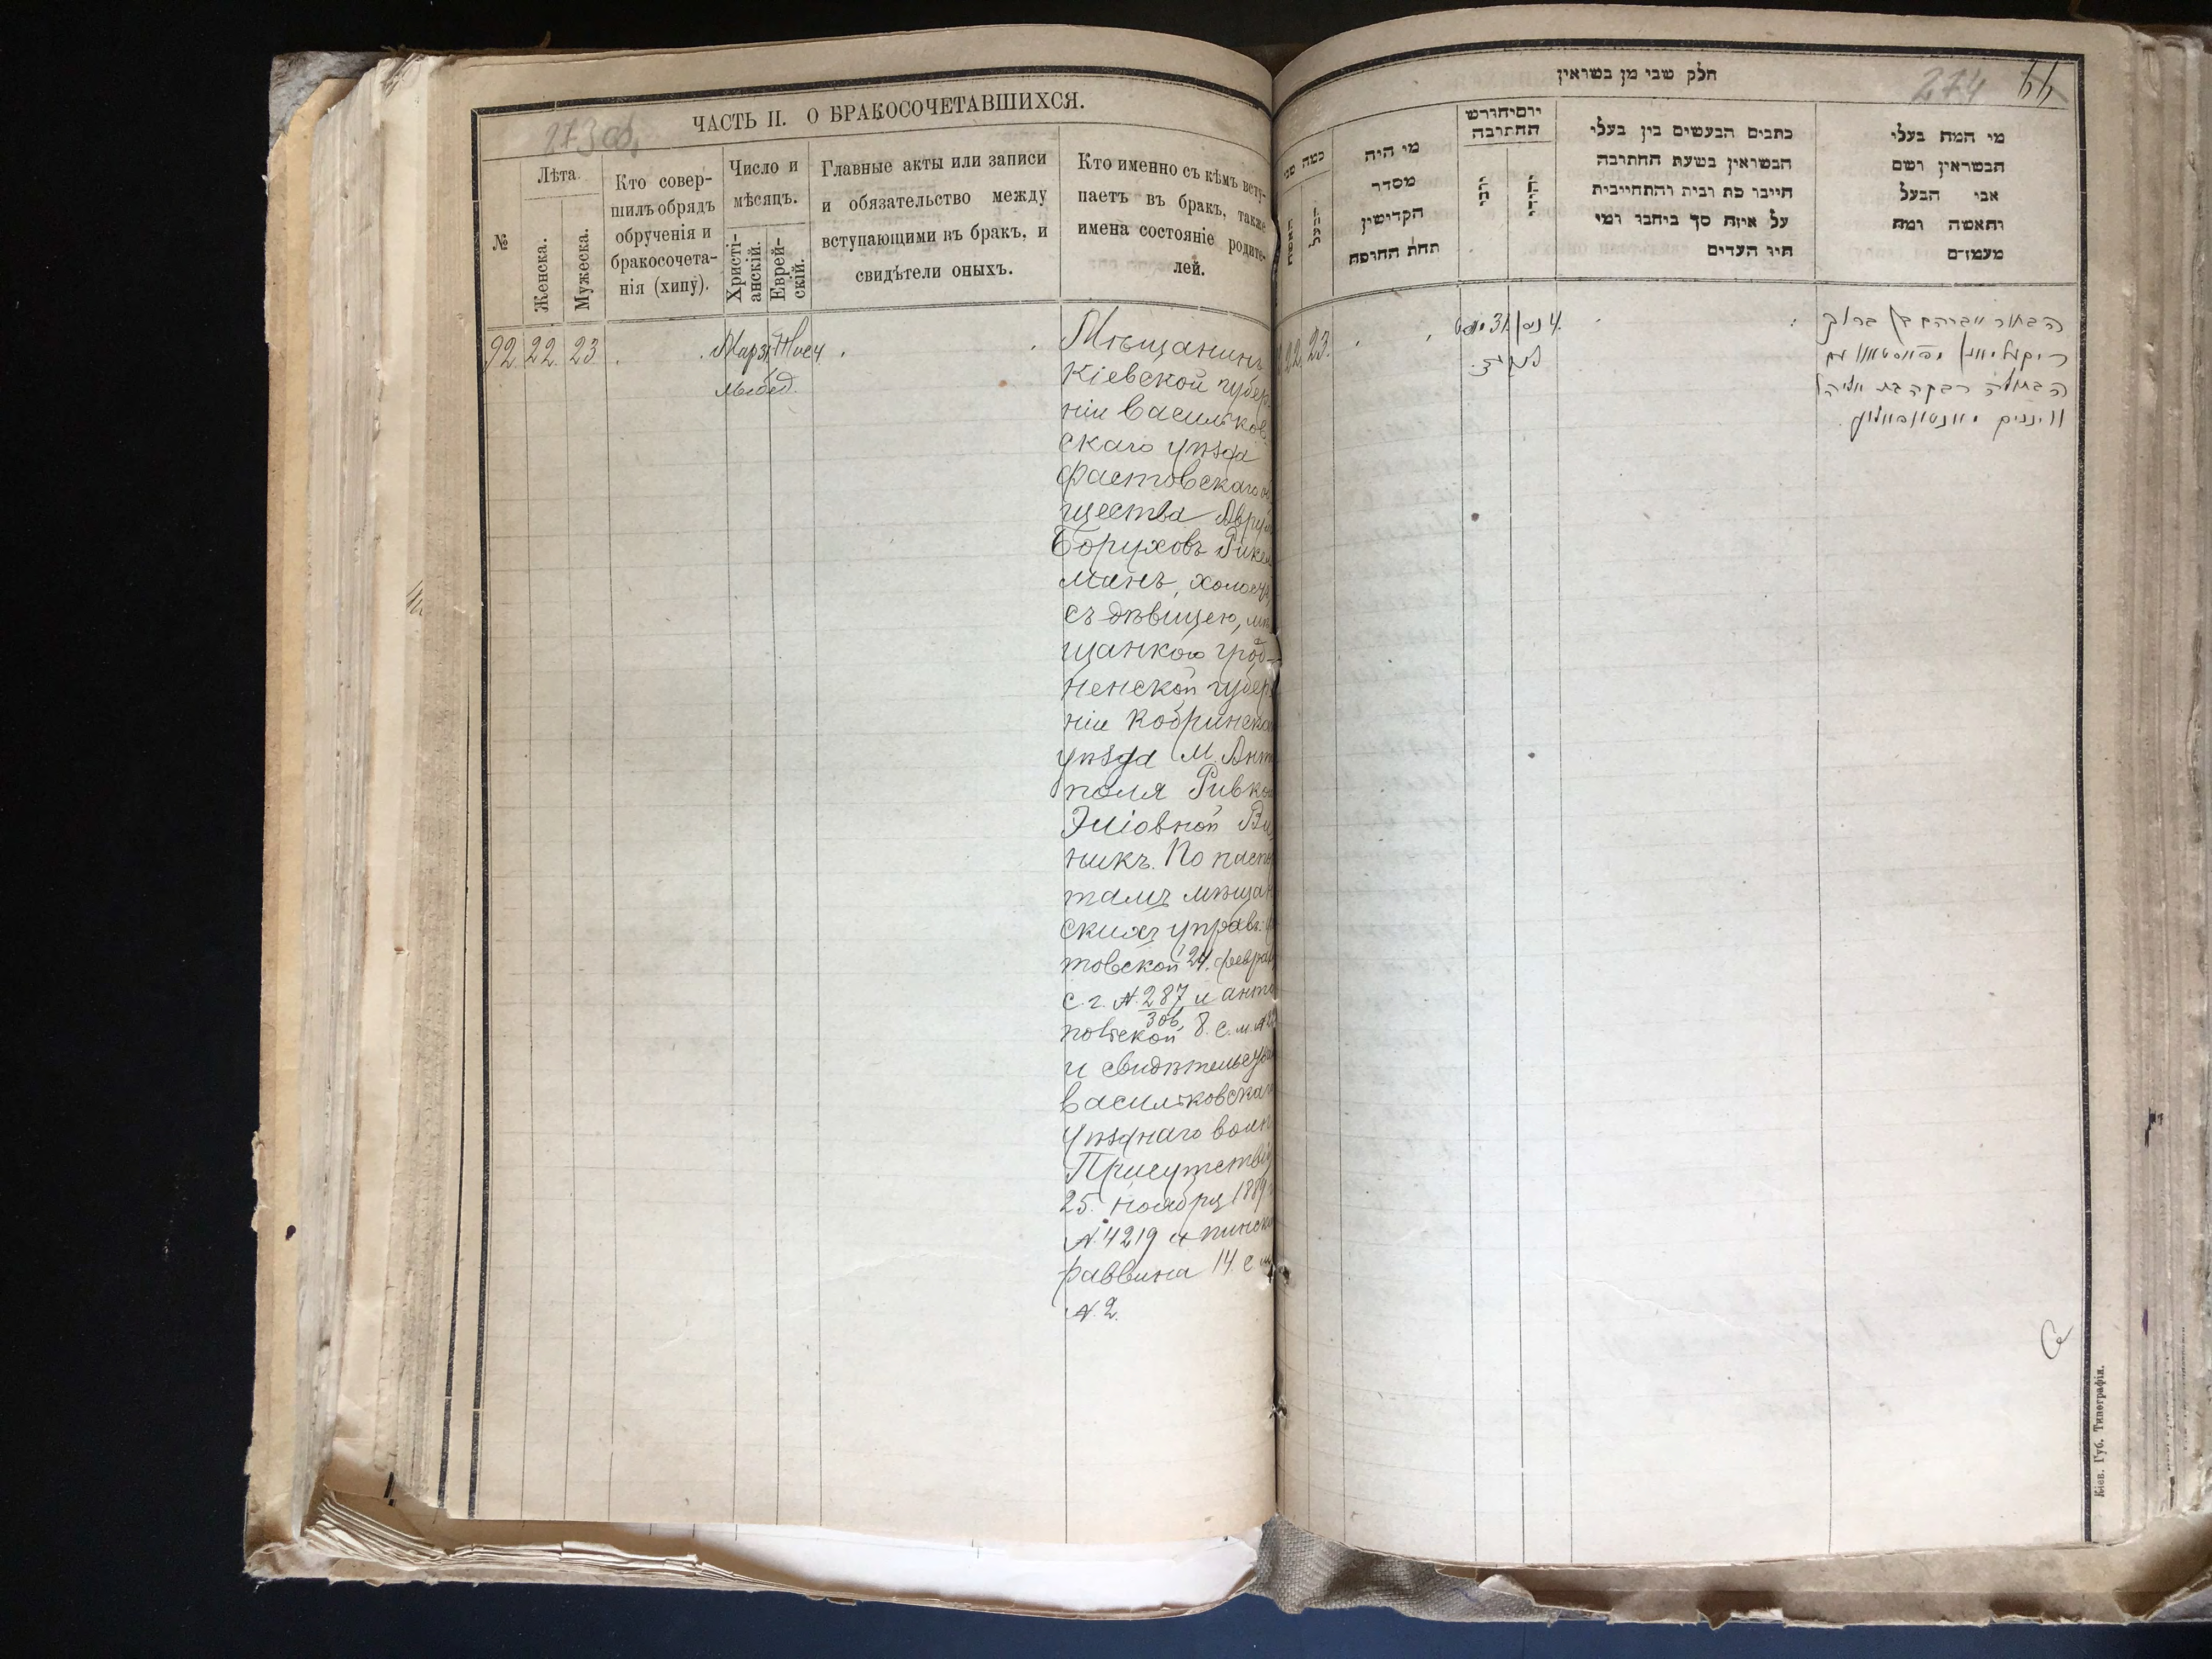 ЧАСТЬ II. О БРАКОСОЧЕТАВШИХСЯ.
273 об.
№
Лѣта.
Женска.
Мужеска.
Кто совер-
шилъ обрядъ
обрученія и
бракосочета-
нія (хипу).
Число и
мѣсяцъ.
Христі-
анскій.
Еврей-
скій.
Главные акты или записи
и обязательство между
вступающими въ бракъ, и
свидѣтели оныхъ.
Кто именно съ кѣмъ всту-
паетъ въ бракъ, также
имена состояніе родите-
лей.
92 22 23
Мар 31
Мѣщанинъ
Кіевской губер
ніи Васильков
скаго уѣзда
Фастовскаго
щества Аврум
Боруховъ Рикел
манъ, холост
съ дѣвицею, мѣ
щанкою Грод-
ненской губер
ніи Кобринска
уѣзда М. Ант
поля Ривко
Эліовной Ви
никъ. По паспо
тамъ мѣщан
скихъ управъ:
товской 24. февра
с. г. N. 287 и анто
306
польской 8. с. м. N
и свидѣтельства
Васильковска
уѣзднаго воин
Присутствія
25. ноября 1889
N. 4219 и пинск
раввина 14. с м
N. 2.
חלק שני מן נשואין
274
כמה שני
האשה
הבעל
מי היה
מסדר
הקדישין
תחת החופה
יום וחודש
החתונה
כתבים הנעשים בין בעלי
הנשואין בשעת החתונה
חייבו כת ובית והתחייבית
על איזה סך ביחבו ומי
היו העדים
מי המה בעלי
הנשואין ושם
אבי הבעל
והאשה ומה
מעמדם
22 23
31
4 ניסן
הבחור אברהם בן ברוך
ריקעלמאן
הבתולה רבקה בת אליהו
וויניק
Кіев. Губ. Типографія.